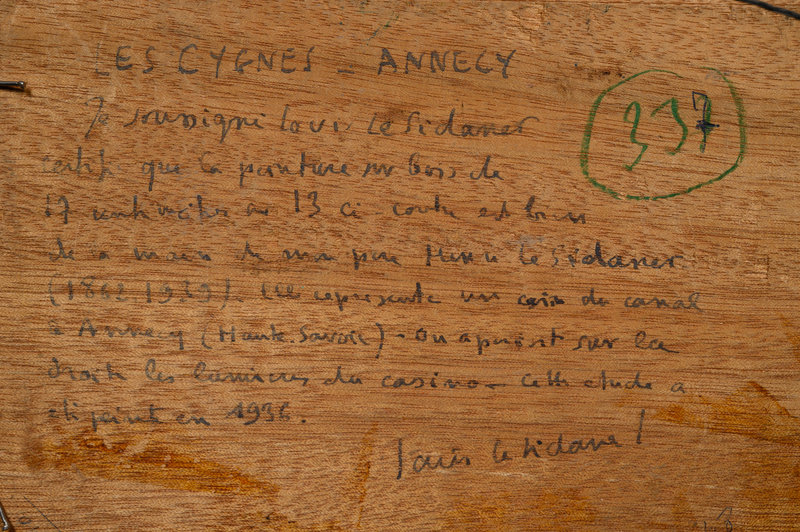 LES CYGNES - ANNECY
337
Je soussigné Louis Le Sidaner
certifie que la peinture sur bois de
17 centimètres sur 13 ci contre est bien
de la main de mon père Henri Le Sidaner
(1862 1939). Elle represente un coin du canal
à Annecy (Haute-Savoie) - On aperçoit sur la
droite les lumières du casino - Cette etude a
été peinte en 1936.
Louis Le Sidaner